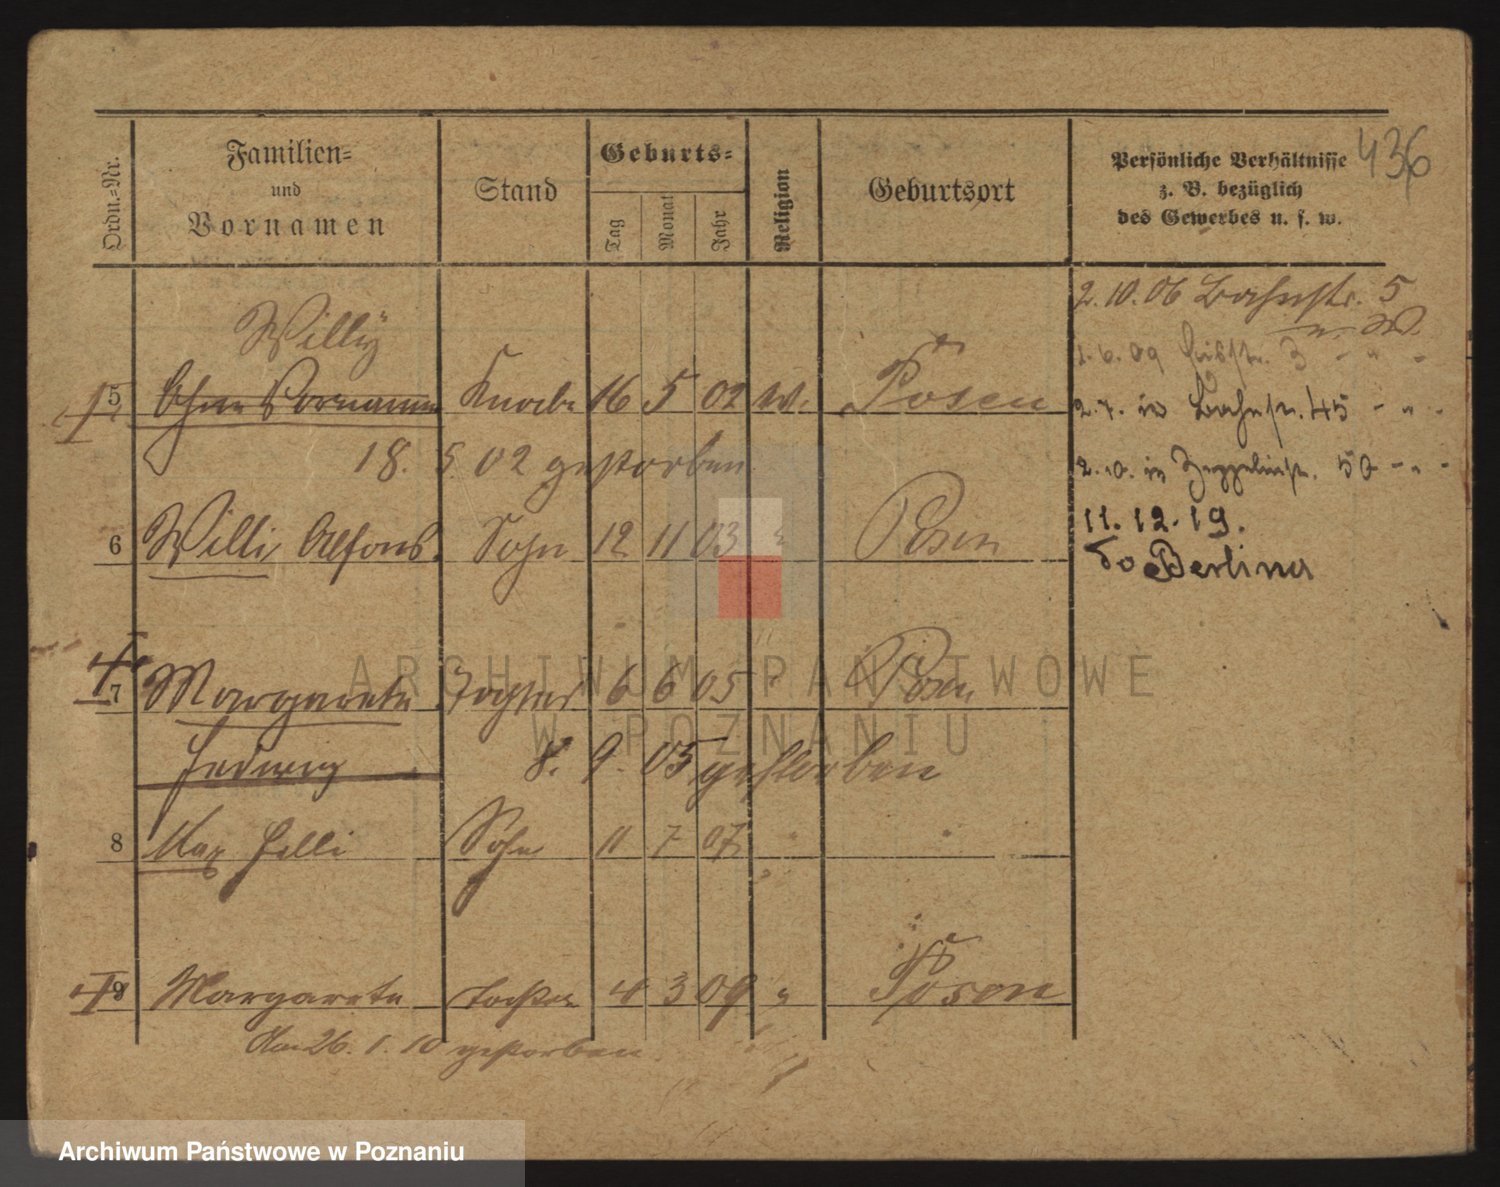 436
Ordn.-Nr.
Familien-
und
Vornamen
Stand
Geburts-
Tag
Monat
Jahr
Religion
Geburtsort
Persönliche Verhältnisse
z. B. bezüglich
des Gewerbes u. s. w.
2.10.06 Bahnstr. 5
Willy
1.6.09 3 - " -
5 Ohne Vornamen Knabe 16 5 02 Posen
2.7. 10 Bahnstr. 45 - " -
18. 5 02 gestorben
2.10. 10 Zeppelinstr. 50 - " -
11.12.19.
6 Willi Alfons. Sohn 12 11 03 " Posen
do Berlina
7 Margarete Tochter 6 6 05 " Posen
Hedwig 8. 9. 05 gestorben
8 Max Sohn 11 7 07 " "
9 Margarete Tochter 4 3 09 " Posen
Am 26. 1. 10 gestorben.
ARCHIWUM PAŃSTWOWE
W POZNANIU
Archiwum Państwowe w Poznaniu